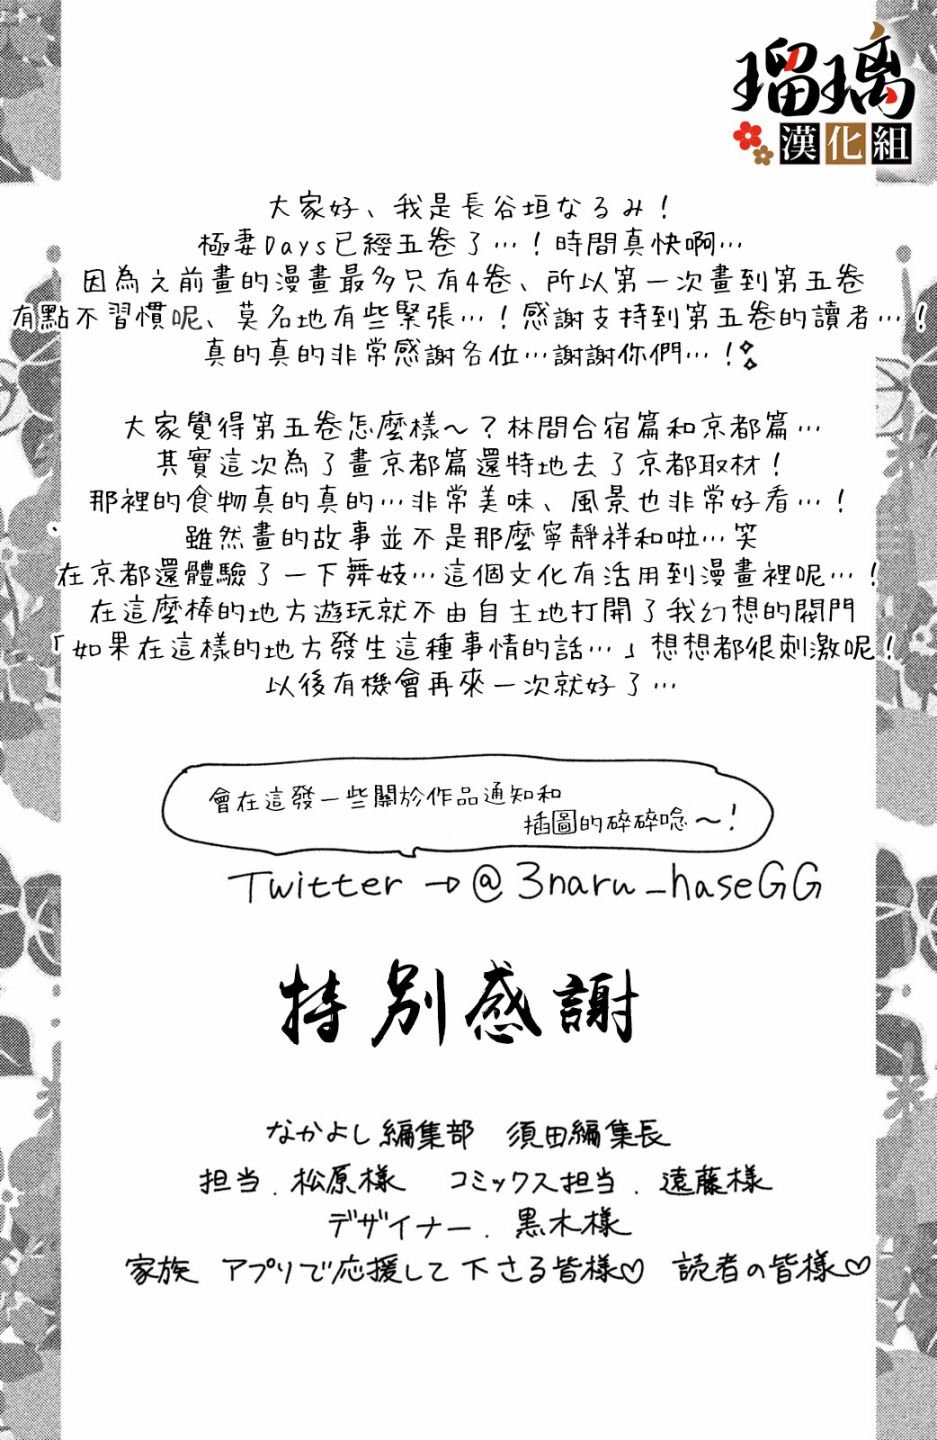 瑠璃
漢化組
大家好、我是長谷垣なるみ！
極妻Days已經五卷了…！時間真快啊…
因為之前畫的漫畫最多只有4卷、所以第一次畫到第五卷
有點不習慣呢、莫名地有些緊張…！感謝支持到第五卷的讀者…！
真的真的非常感謝各位…謝謝你們…！
大家覺得第五卷怎麼樣～？林間合宿篇和京都篇…
其實這次為了畫京都篇還特地去了京都取材！
那裡的食物真的真的…非常美味、風景也非常好看…！
雖然畫的故事並不是那麼寧靜祥和啦…笑
在京都還體驗了一下舞妓…這個文化有活用到漫畫裡呢…！
在這麼棒的地方遊玩就不由自主地打開了我幻想的開門
「如果在這樣的地方發生這種事情的話…」想想都很刺激呢！
以後有機會再來一次就好了…
會在這發一些關於作品通知和
插圖的碎碎唸～！
Twitter→@3naru_haseGG
特別感謝
なかよし編集部 須田編集長
担当．松原様 コミックス担当．遠藤様
デザイナー．黒木様
家族 アプリで応援して下さる皆様♡ 読者の皆様♡